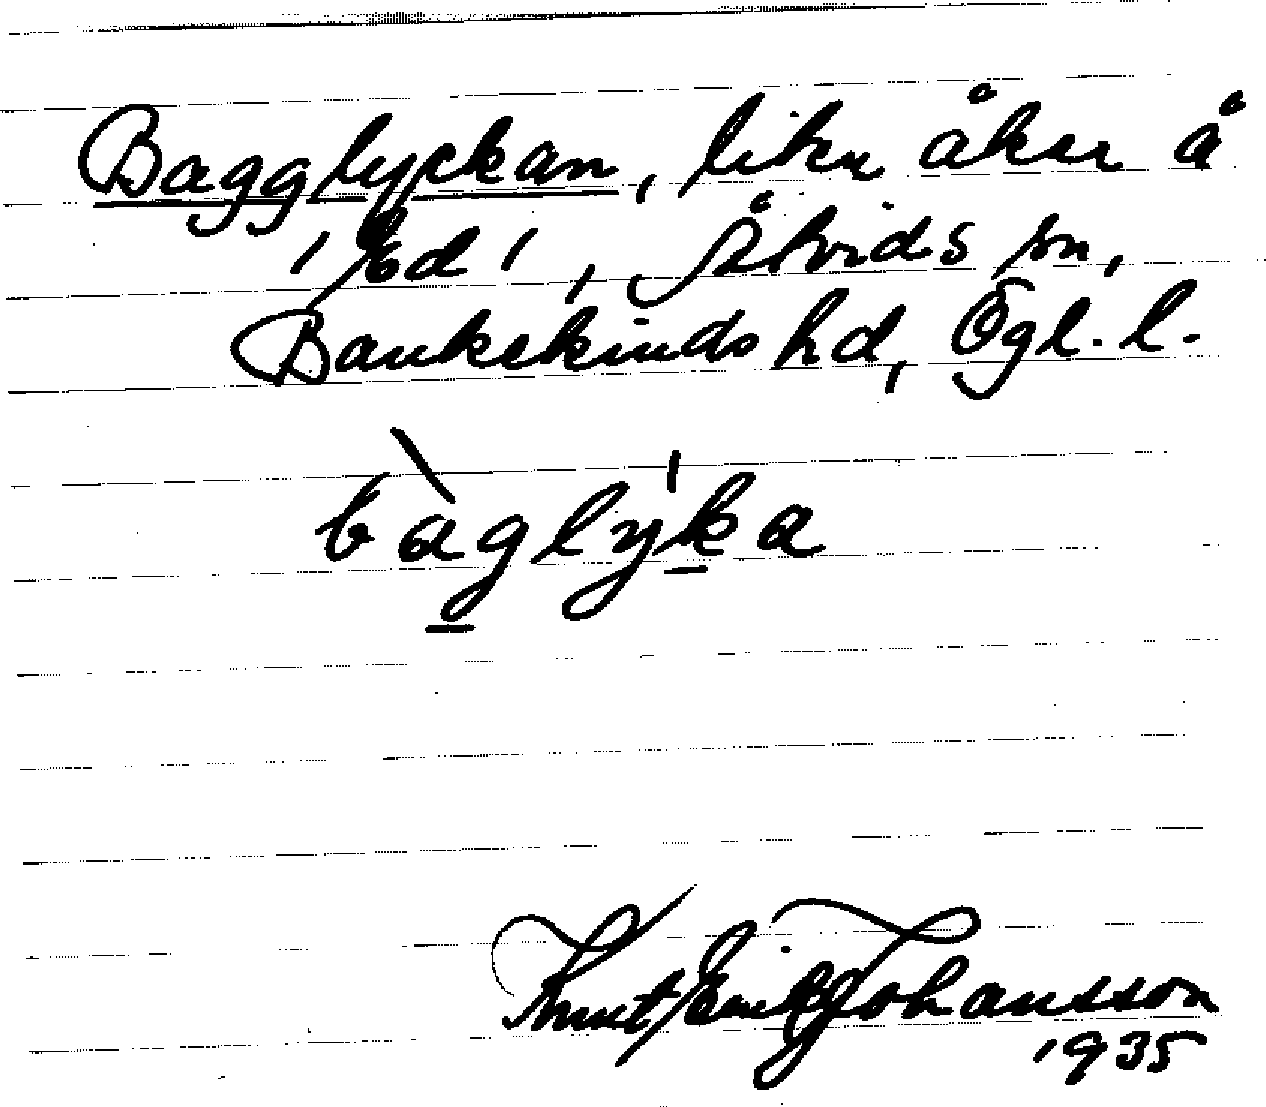 Bagglyckan, liten åker å
'Ed', Åtvids sn,
Bankekinds hd, Ögl. l.
bàglýka
Knut Erik Johansson
1935